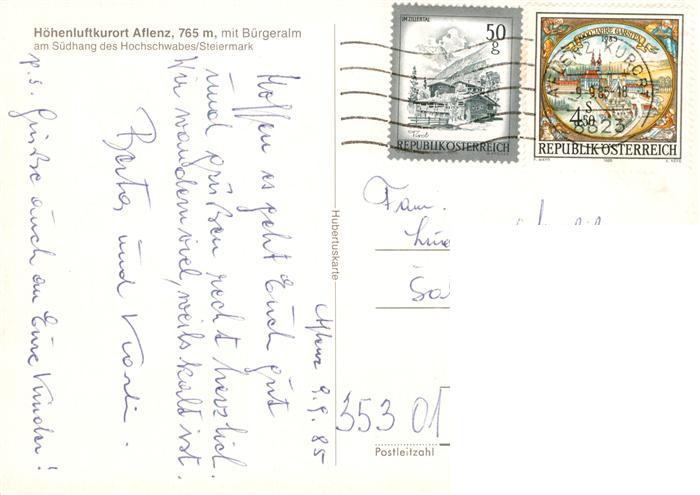 Höhenluftkurort Aflenz, 765 m, mit Bürgeralm
am Südhang des Hochschwabes/Steiermark
Aflenz 9.9.85
Hoffen es geht Euch gut
und grüßen recht herzlich.
Wir wandern viel, weils kalt ist.
Berta und
p.s. Grüße auch an Eure Kinder!
Hubertuskarte
IM ZILLERTAL
50
g
Tirol
REPUBLIK ÖSTERREICH
GARSTEN
4.50
S
REPUBLIK ÖSTERREICH
1985
AFLENZ KURORT
9.9.85-18
8623
Fam.
353 01
Postleitzahl